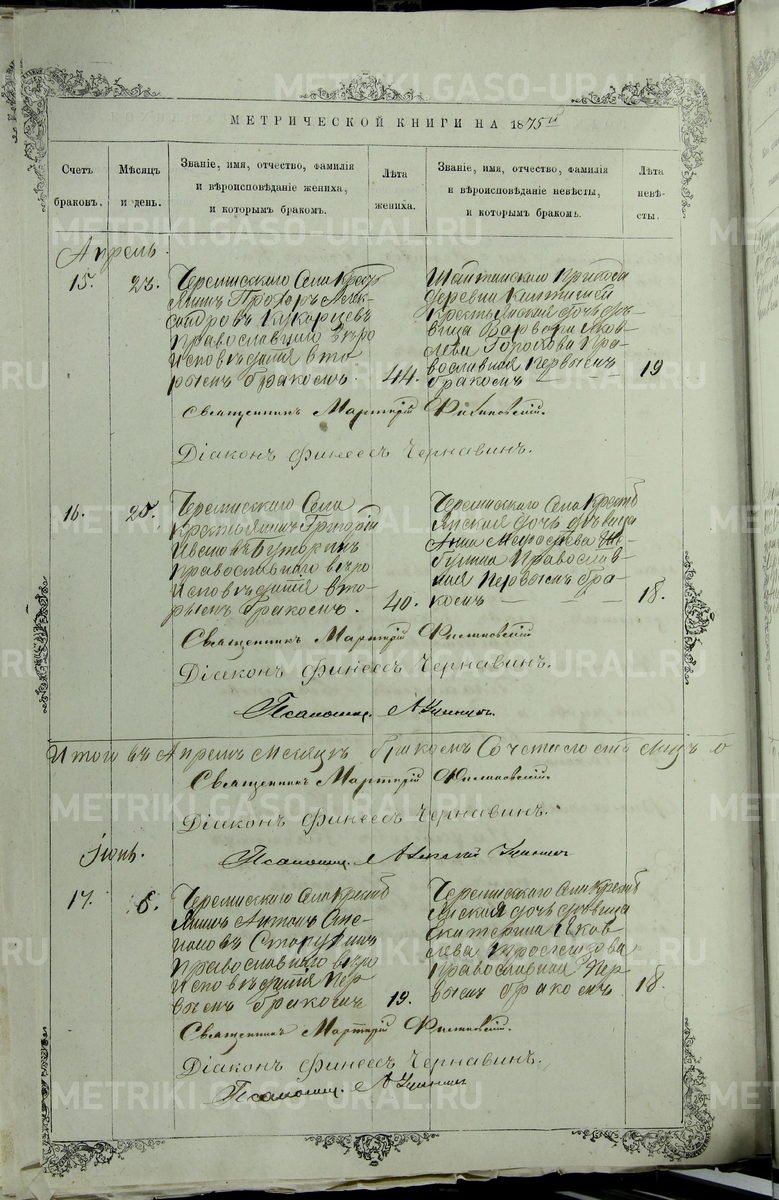 METRIKI.GASO-URAL.RU
МЕТРИЧЕСКОЙ КНИГИ НА 1875й
Счетъ браковъ.
Мѣсяцъ и день.
Званіе, имя, отчество, фамилія
и вѣроисповѣданіе жениха,
и которымъ бракомъ.
Лѣта жениха.
Званіе, имя, отчество, фамилія
и вѣроисповѣданіе невѣсты,
и которымъ бракомъ.
Лѣта невѣ-
сты.
Апрель.
15.
23.
Черемисскаго Села Кресть
янинъ Прохоръ Алек-
сандровъ Кукарцевъ
Православнаго вѣро
исповѣданія вто
рымъ бракомъ.
44.
Шайтанскаго Прихода
деревни
Крестьянская дочь дѣ-
вица Варвара Яков
лева Горохова Пра-
вославная первымъ
бракомъ
19
Священникъ Мартирій
Діаконъ Финеесъ Чернавинъ.
16.
25.
Черемисскаго Села
Крестьянинъ Григорій
Ивановъ Бутаринъ
Православнаго вѣро
исповѣданія вто-
рымъ бракомъ.
40.
Черемисскаго Села Кресть
янская дочь дѣвица
Анна
Православ
ная первымъ бра-
комъ
18.
Священникъ Мартирій
Діаконъ Финеесъ Чернавинъ.
Псаломщ.
Итого въ Апрелѣ месяцѣ бракомъ Сочеталось
Священникъ Мартирій
Діаконъ Финеесъ Чернавинъ.
Псаломщ.
Іюнь.
17.
8.
Черемисскаго Села Кресть
янинъ Антонъ Сте-
пановъ
Православнаго вѣро
исповѣданія пер
вымъ бракомъ
19.
Черемисскаго Села Кресть
янская дочь дѣвица
Екатерина Яков
лева
Православная пер
вымъ бракомъ
18.
Священникъ Мартирій
Діаконъ Финеесъ Чернавинъ.
Псаломщ.